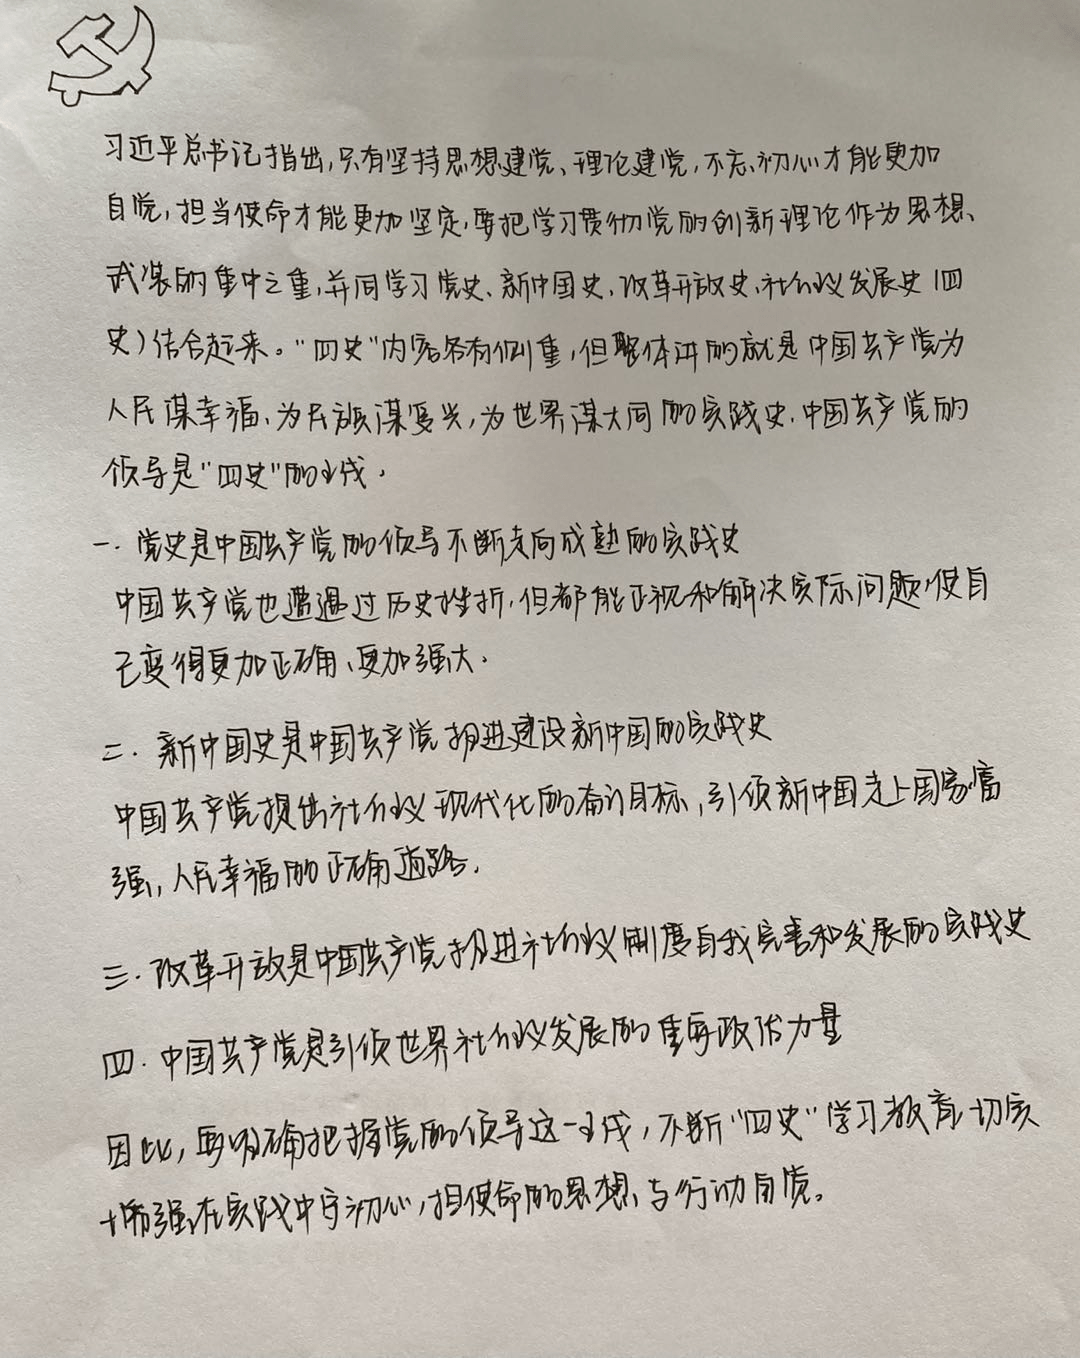 习近平总书记指出,只有坚持思想建党、理论建党,不忘初心才能更加
自觉,担当使命才能更加坚定,要把学习贯彻党的创新理论作为思想
武装的重中之重,并同学习党史、新中国史、改革开放史、社会主义发展史(四
史)结合起来。"四史"内容各有侧重,但整体讲的就是中国共产党为
人民谋幸福、为民族谋复兴,为世界谋大同的实践史.中国共产党的
领导是"四史"的主线.
一.党史是中国共产党的领导不断走向成熟的实践史
中国共产党也遭遇过历史挫折,但都能正视和解决实际问题,使自
己变得更加正确、更加强大.
二.新中国史是中国共产党推进建设新中国的实践史
中国共产党提出社会主义现代化的奋斗目标,引领新中国走上国家富
强,人民幸福的正确道路.
三.改革开放是中国共产党推进社会主义制度自我完善和发展的实践史
四.中国共产党是引领世界社会主义发展的重要政治力量
因此,要明确把握党的领导这一主线,不断"四史"学习教育切实
增强在实践中守初心,担使命的思想与行动自觉。